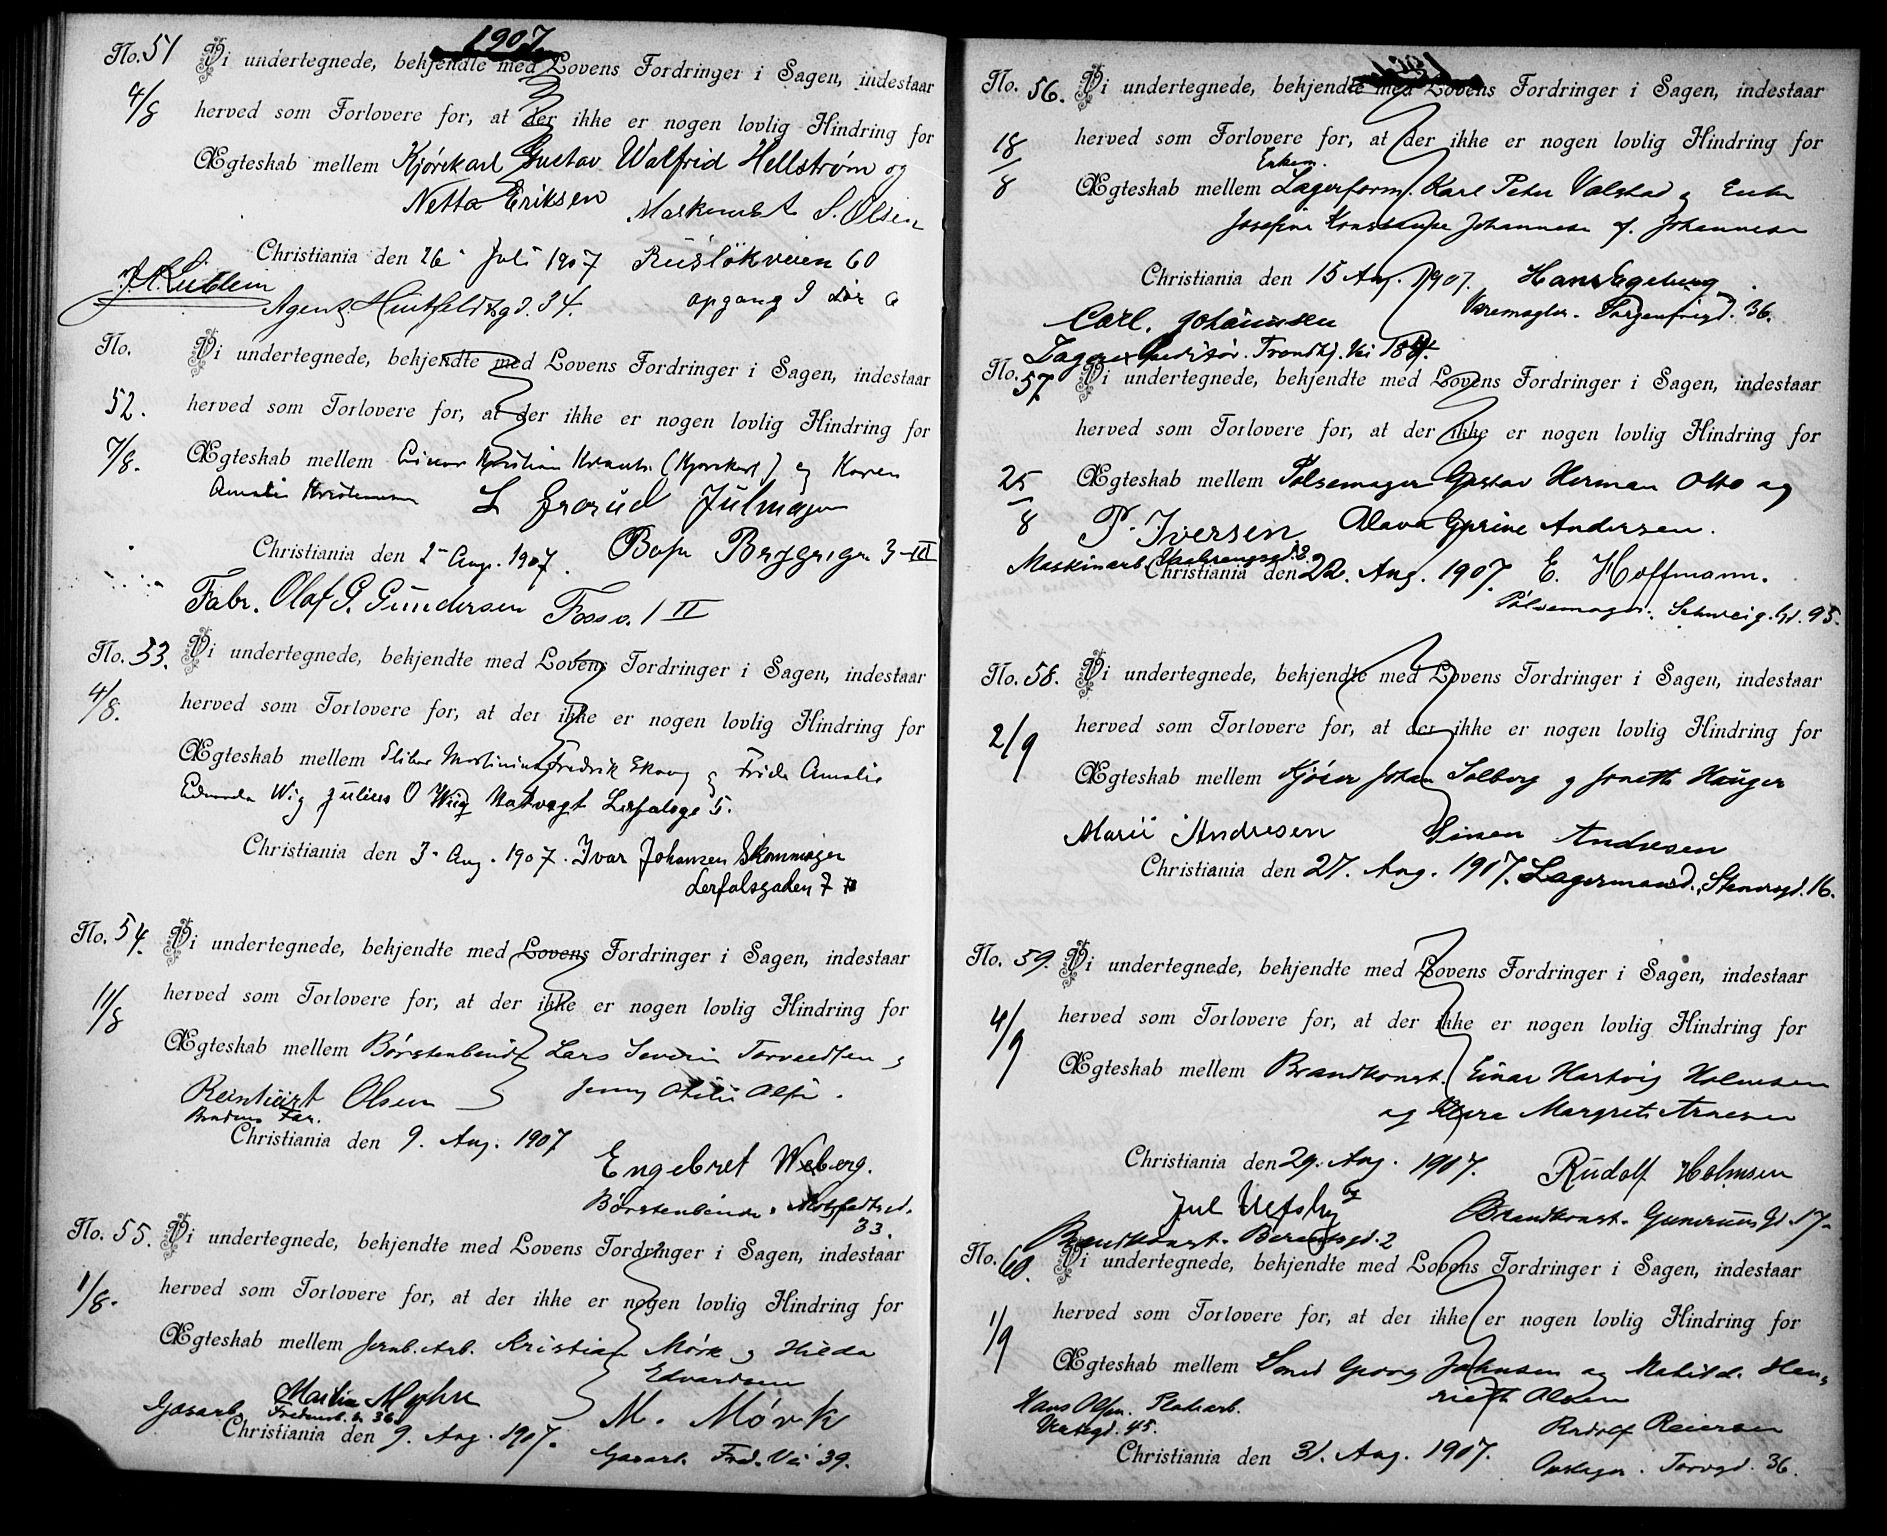 1907
No. 51 Vi undertegnede, bekjendte med Lovens Fordringer i Sagen, indestaar
4/8 herved som Forlovere for, at der ikke er nogen lovlig Hindring for
Ægteskab mellem Kjørekarl Gustav Walfrid Hellstrøm og
Netta Eriksen Maskinarb. S. Olsen
Christiania den 26 Juli 1907 Ruslökveien 60
Agent Huitfeldtsgd. 34. opgang 9 Dör
No. Vi undertegnede, bekjendte med Lovens Fordringer i Sagen, indestaar
52. herved som Forlovere for, at der ikke er nogen lovlig Hindring for
7/8. Ægteskab mellem Kristian (Kjørekarl) og Karen
Amalie L Grorud Julmager
Christiania den 2 Aug. 1907. Bopæl Bryggerigr. 3-III
Fabr. Olaf G. Gundersen Fossv. 1 II
No. 53. Vi undertegnede, bekjendte med Lovens Fordringer i Sagen, indestaar
4/8. herved som Forlovere for, at der ikke er nogen lovlig Hindring for
Ægteskab mellem Fredrik Skaug og Frida Amalie
Edvarda Wig Julius O Wiig Natvagt Lerfalsge 5.
Christiania den 3 Aug. 1907. Ivar Johansen Skommager
Lerfalsgaden 7
No. 54. Vi undertegnede, bekjendte med Lovens Fordringer i Sagen, indestaar
11/8 herved som Forlovere for, at der ikke er nogen lovlig Hindring for
Ægteskab mellem Børstenbinder Lars Severin Torvedsen og
Reinhart Olsen Jenny Otilie Olsen.
Brudens Far.
Christiania den 9. Aug. 1907
Engebret Weberg.
Børstenbinder
33.
No. 55. Vi undertegnede, bekjendte med Lovens Fordringer i Sagen, indestaar
1/8. herved som Forlovere for, at der ikke er nogen lovlig Hindring for
Ægteskab mellem Jernb. Arb. Kristian Mørk og Hilda
Edvardsen
Gasarb. Martin Myhre M. Mørk
Christiania den 9. Aug. 1907.
Gasarb. Fred. Vei 39.
No. 56. Vi undertegnede, bekjendte med Lovens Fordringer i Sagen, indestaar
18/8 herved som Forlovere for, at der ikke er nogen lovlig Hindring for
Enkem.
Ægteskab mellem Lagerform. Karl Peter Valstad og Enke
Josefine Konstanse Johannesen f. Johannesen
Christiania den 15 Aug. 1907. Hans Ageberg
Varemægler. Sorgenfrigd. 36.
Carl. Johannsen
Lagerexpeditör. Trondhj. Vei
No. 57. Vi undertegnede, bekjendte med Lovens Fordringer i Sagen, indestaar
herved som Forlovere for, at der ikke er nogen lovlig Hindring for
25/8 Ægteskab mellem Pølsemager Gustav Herman Otto og
P. Iversen Olava Gurine Andersen.
Maskinarb. Christiania den 22. Aug. 1907. E. Hoffmann.
Pølsemager. Schweig. Gd. 95.
No. 58. Vi undertegnede, bekjendte med Lovens Fordringer i Sagen, indestaar
2/9 herved som Forlovere for, at der ikke er nogen lovlig Hindring for
Ægteskab mellem Kjører Johan Solberg og Jonetta Hauger
Marie Andresen Simen Andresen
Christiania den 27. Aug. 1907. Lagermand. Stenersgd. 16.
No. 59. Vi undertegnede, bekjendte med Lovens Fordringer i Sagen, indestaar
4/9 herved som Forlovere for, at der ikke er nogen lovlig Hindring for
Ægteskab mellem Brandkonst. Einar Hartvig Holmsen
og Margrete Arnesen
Christiania den 29. Aug. 1907. Rudolf Holmsen
Brandkonst. Gd. 17.
Brandkonst. 2
No. 60. Vi undertegnede, bekjendte med Lovens Fordringer i Sagen, indestaar
1/9 herved som Forlovere for, at der ikke er nogen lovlig Hindring for
Ægteskab mellem Smed Georg Johnsen og Matilde Hen-
riette Olsen
Hans Olsen. Pladearb.
45. Rudolf Reiersen
Christiania den 31. Aug. 1907.
Opslager. Torvgd. 36.